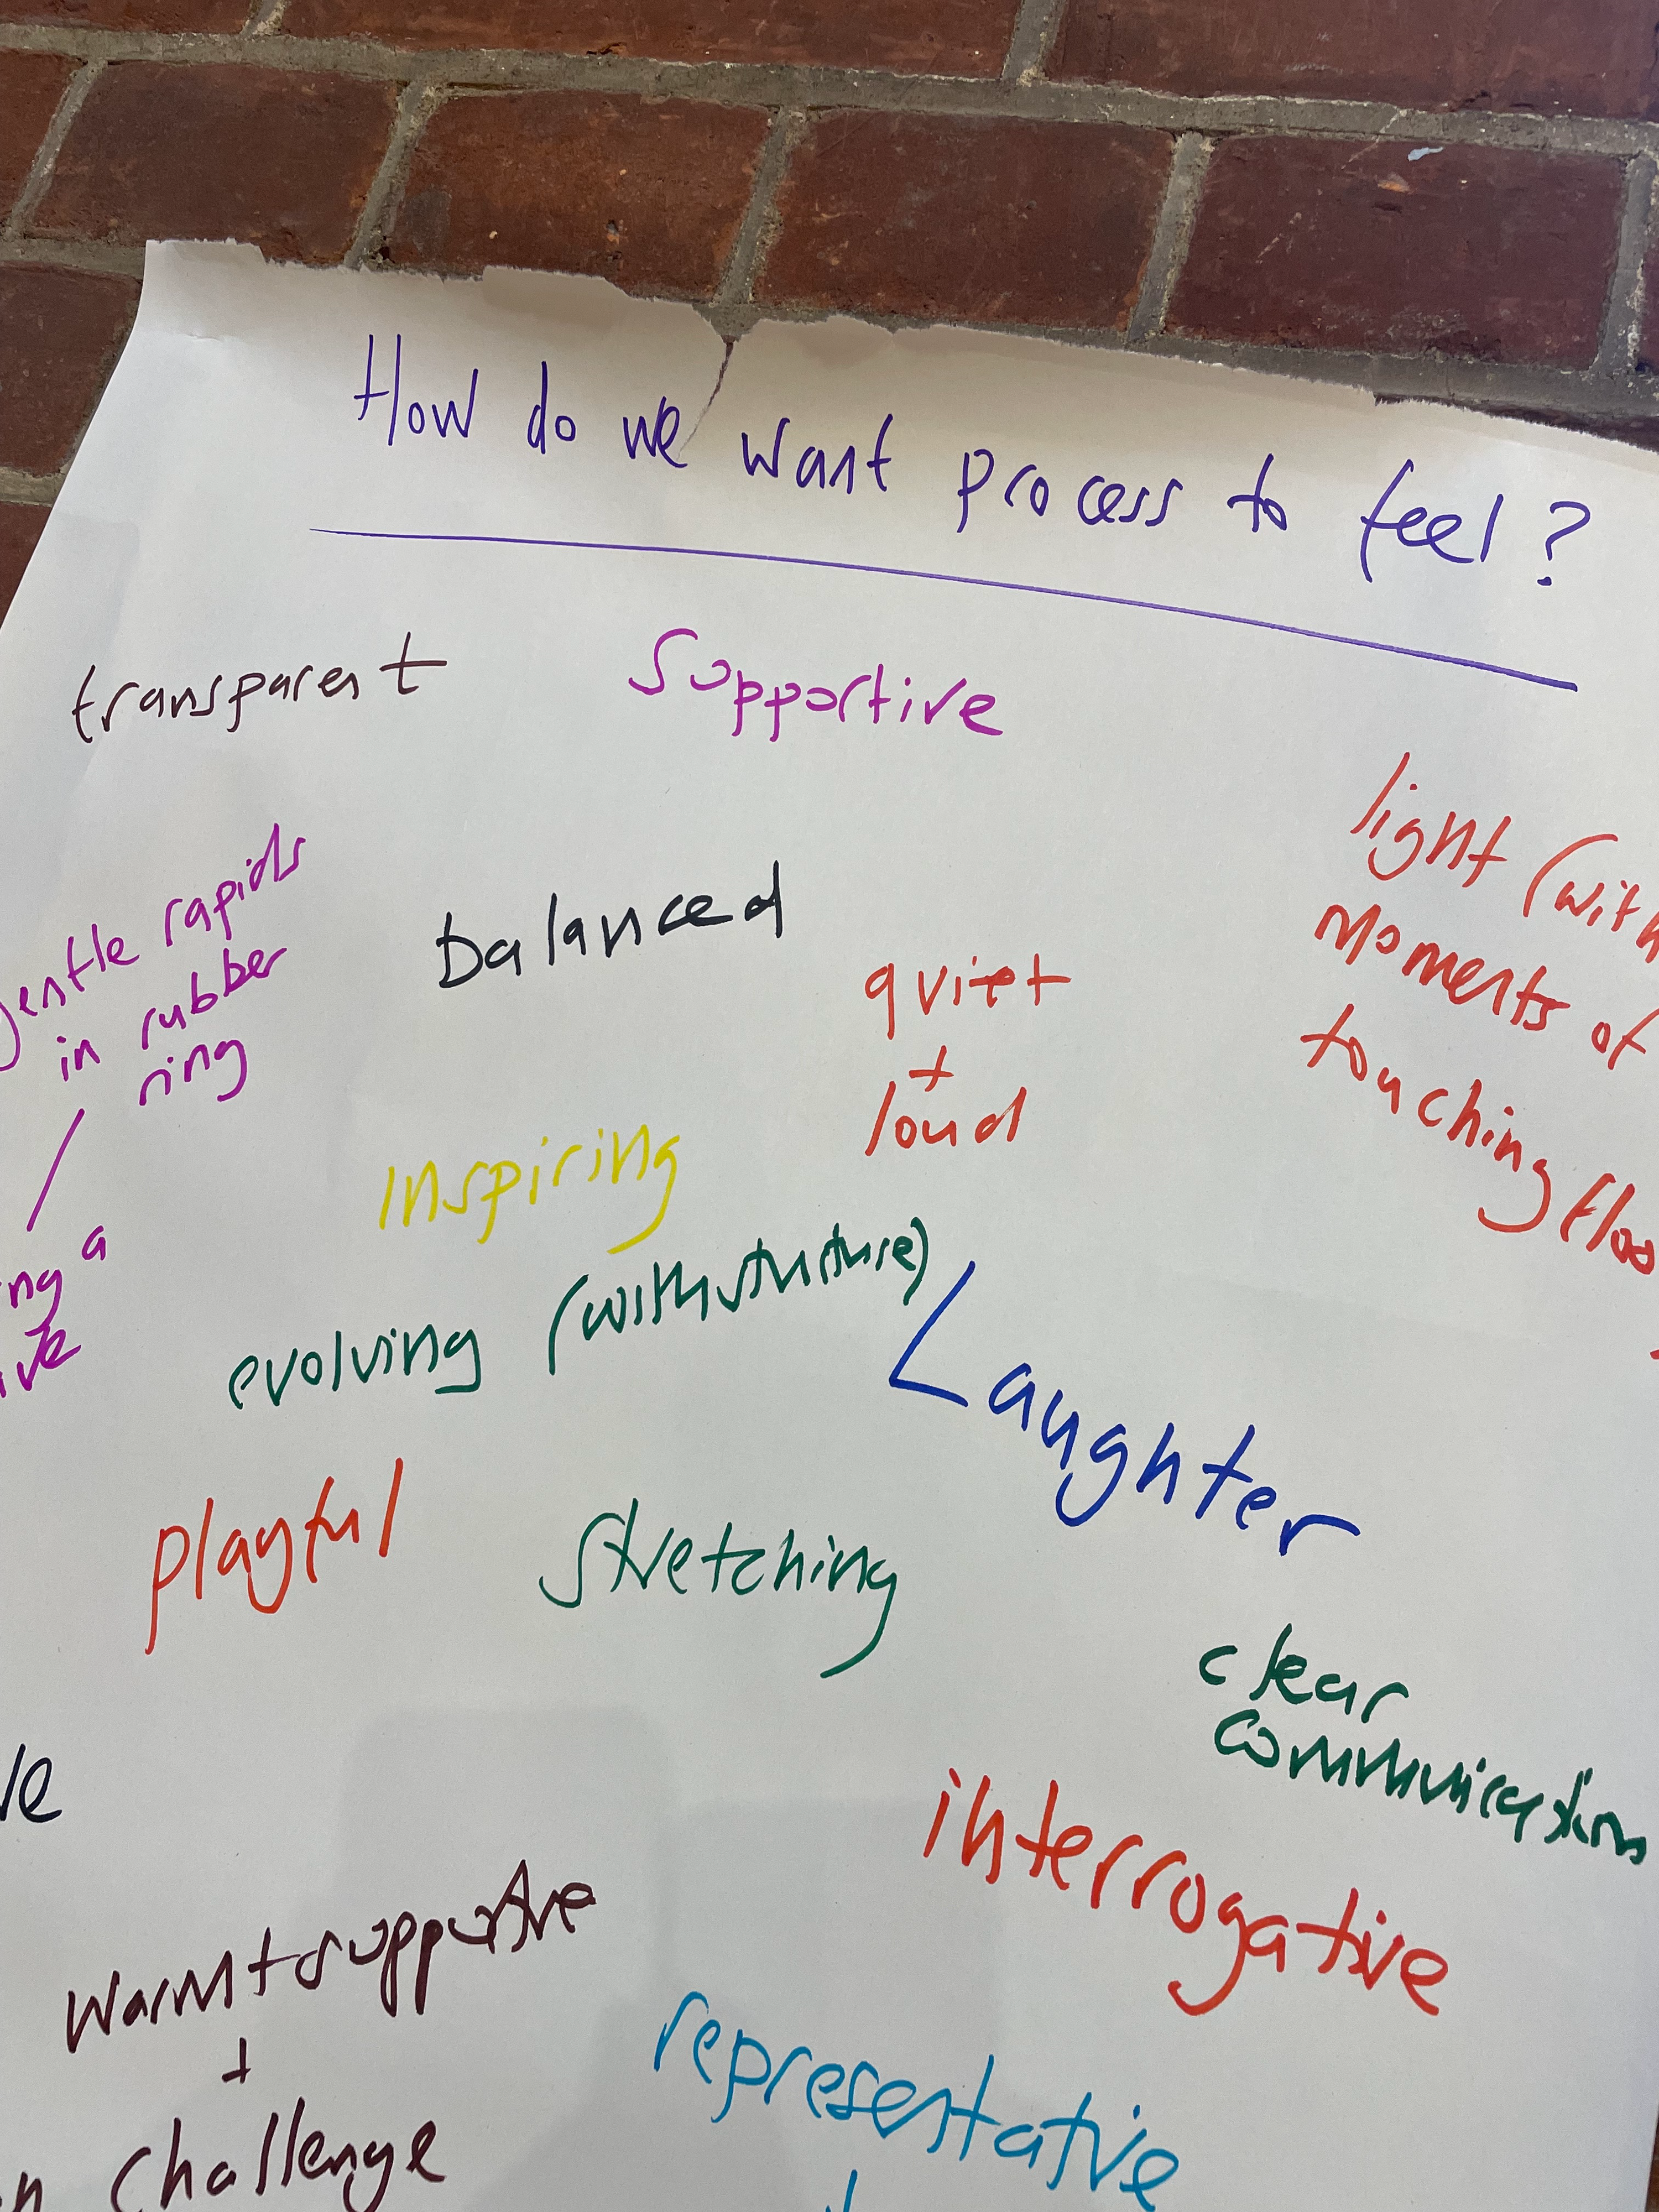 How do we want process to feel?
transparent
Supportive
light (with
moments of
touching floo
gentle rapids
in rubber
ring
balanced
quiet
+
loud
Inspiring
ng a
ive
evolving (with structure)
Laughter
playful
stretching
clear
communication
interrogative
warm + supportive
+
challenge
representative